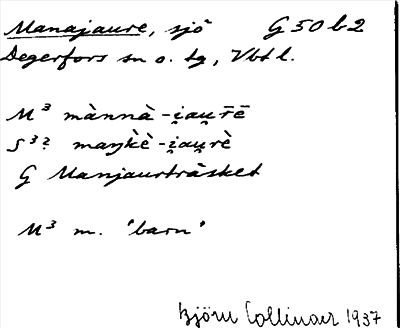 Manajaure, sjö G 50 b 2
Degerfors sn o. tg, Vbtl.
M³ mànnà-i̯au̯r̄ē
S³? maŋk̀è-i̯au̯rè
G Manjaurträsket
M³ m. 'barn'
Björn Collinder 1937